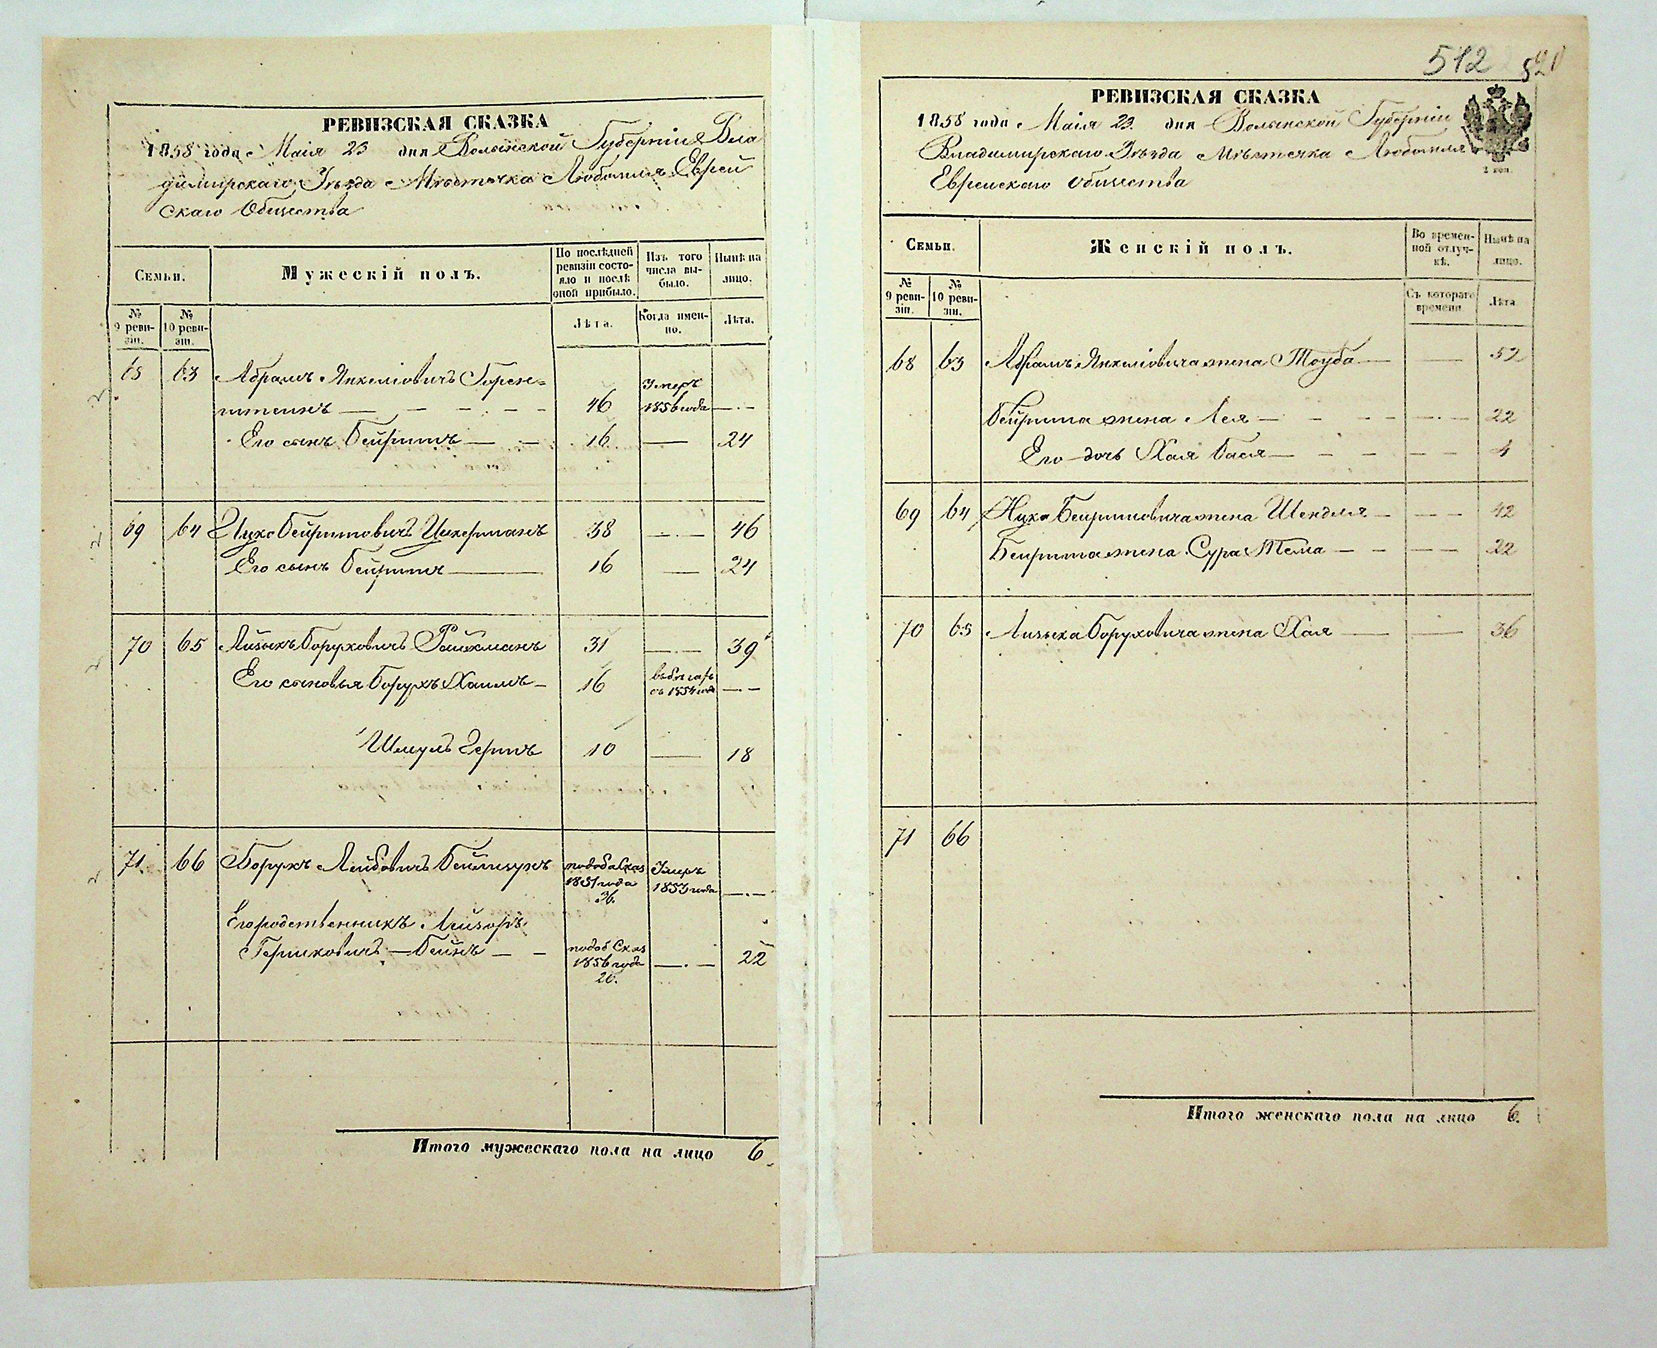 РЕВИЗСКАЯ СКАЗКА
1858 года Маія 23 дня Волынской Губерніи Вла
димирскаго Уѣзда Мѣстечка Любомля Еврей
скаго Общества
Семьи.
Мужескій полъ.
По послѣдней ревизіи состояло и послѣ оной прибыло.
Изъ того числа выбыло.
Нынѣ на лицо.
№ 9 ревизіи.
№ 10 ревизіи.
Лѣта.
Когда именно.
Лѣта.
68 63 Абрамъ Янкеліовичъ Горен=
штеинъ 46 Умеръ 1856 года
Его сынъ Бейришъ 16 24
69 64 Нухо Бейришовичъ Цукерманъ 38 46
Его сынъ Бейришъ 16 24
70 65 Аизыкъ Боруховичъ Райхманъ 31 39
Его сыновья Борухъ Хаимъ 16 въ 1854 года
Шмуль Герша 10 18
71 66 Борухъ Лейбовичъ 1851 года 36. Умеръ 1853 года
Его родственникъ Лейзоръ
Гершковичъ 1856 года 20. 22
Итого мужескаго пола на лицо 6
512 520
РЕВИЗСКАЯ СКАЗКА
1858 года Маія 23 дня Волынской Губерніи
Владимирскаго Уѣзда Мѣстечка Любомля
Еврейскаго Общества
2 коп.
Семьи.
Женскій полъ.
Во временной отлучкѣ.
Нынѣ на лицо.
№ 9 ревизіи.
№ 10 ревизіи.
Съ котораго времени.
Лѣта.
68 63 Абрамъ Янкеліовича жена Тоуба 52
Бейриша жена Лея 22
Его дочь Хая Бася 4
69 64 Нухо Беиришовича жена Шендля 42
Беириша жена Сура Тема 22
70 65 Аизыка Боруховича жена Хая 36
71 66
Итого женскаго пола на лицо 6.